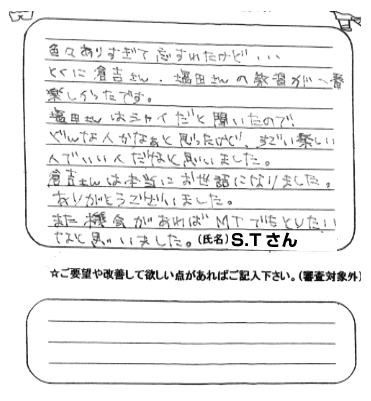 色々ありすぎて忘れたけど...
とくに倉吉さん、塩田さんの教習が一番
楽しかったです。
塩田さんはシャイだと聞いたので
どんな人かなぁと思ったけど、すごい楽しい
人でいい人だなと思いました。
倉吉さんは本当にお世話になりました。
ありがとうございました。
また機会があればMTでもとりたい
なと思いました。(氏名) S.Tさん
☆ご要望や改善して欲しい点があればご記入下さい。(審査対象外)